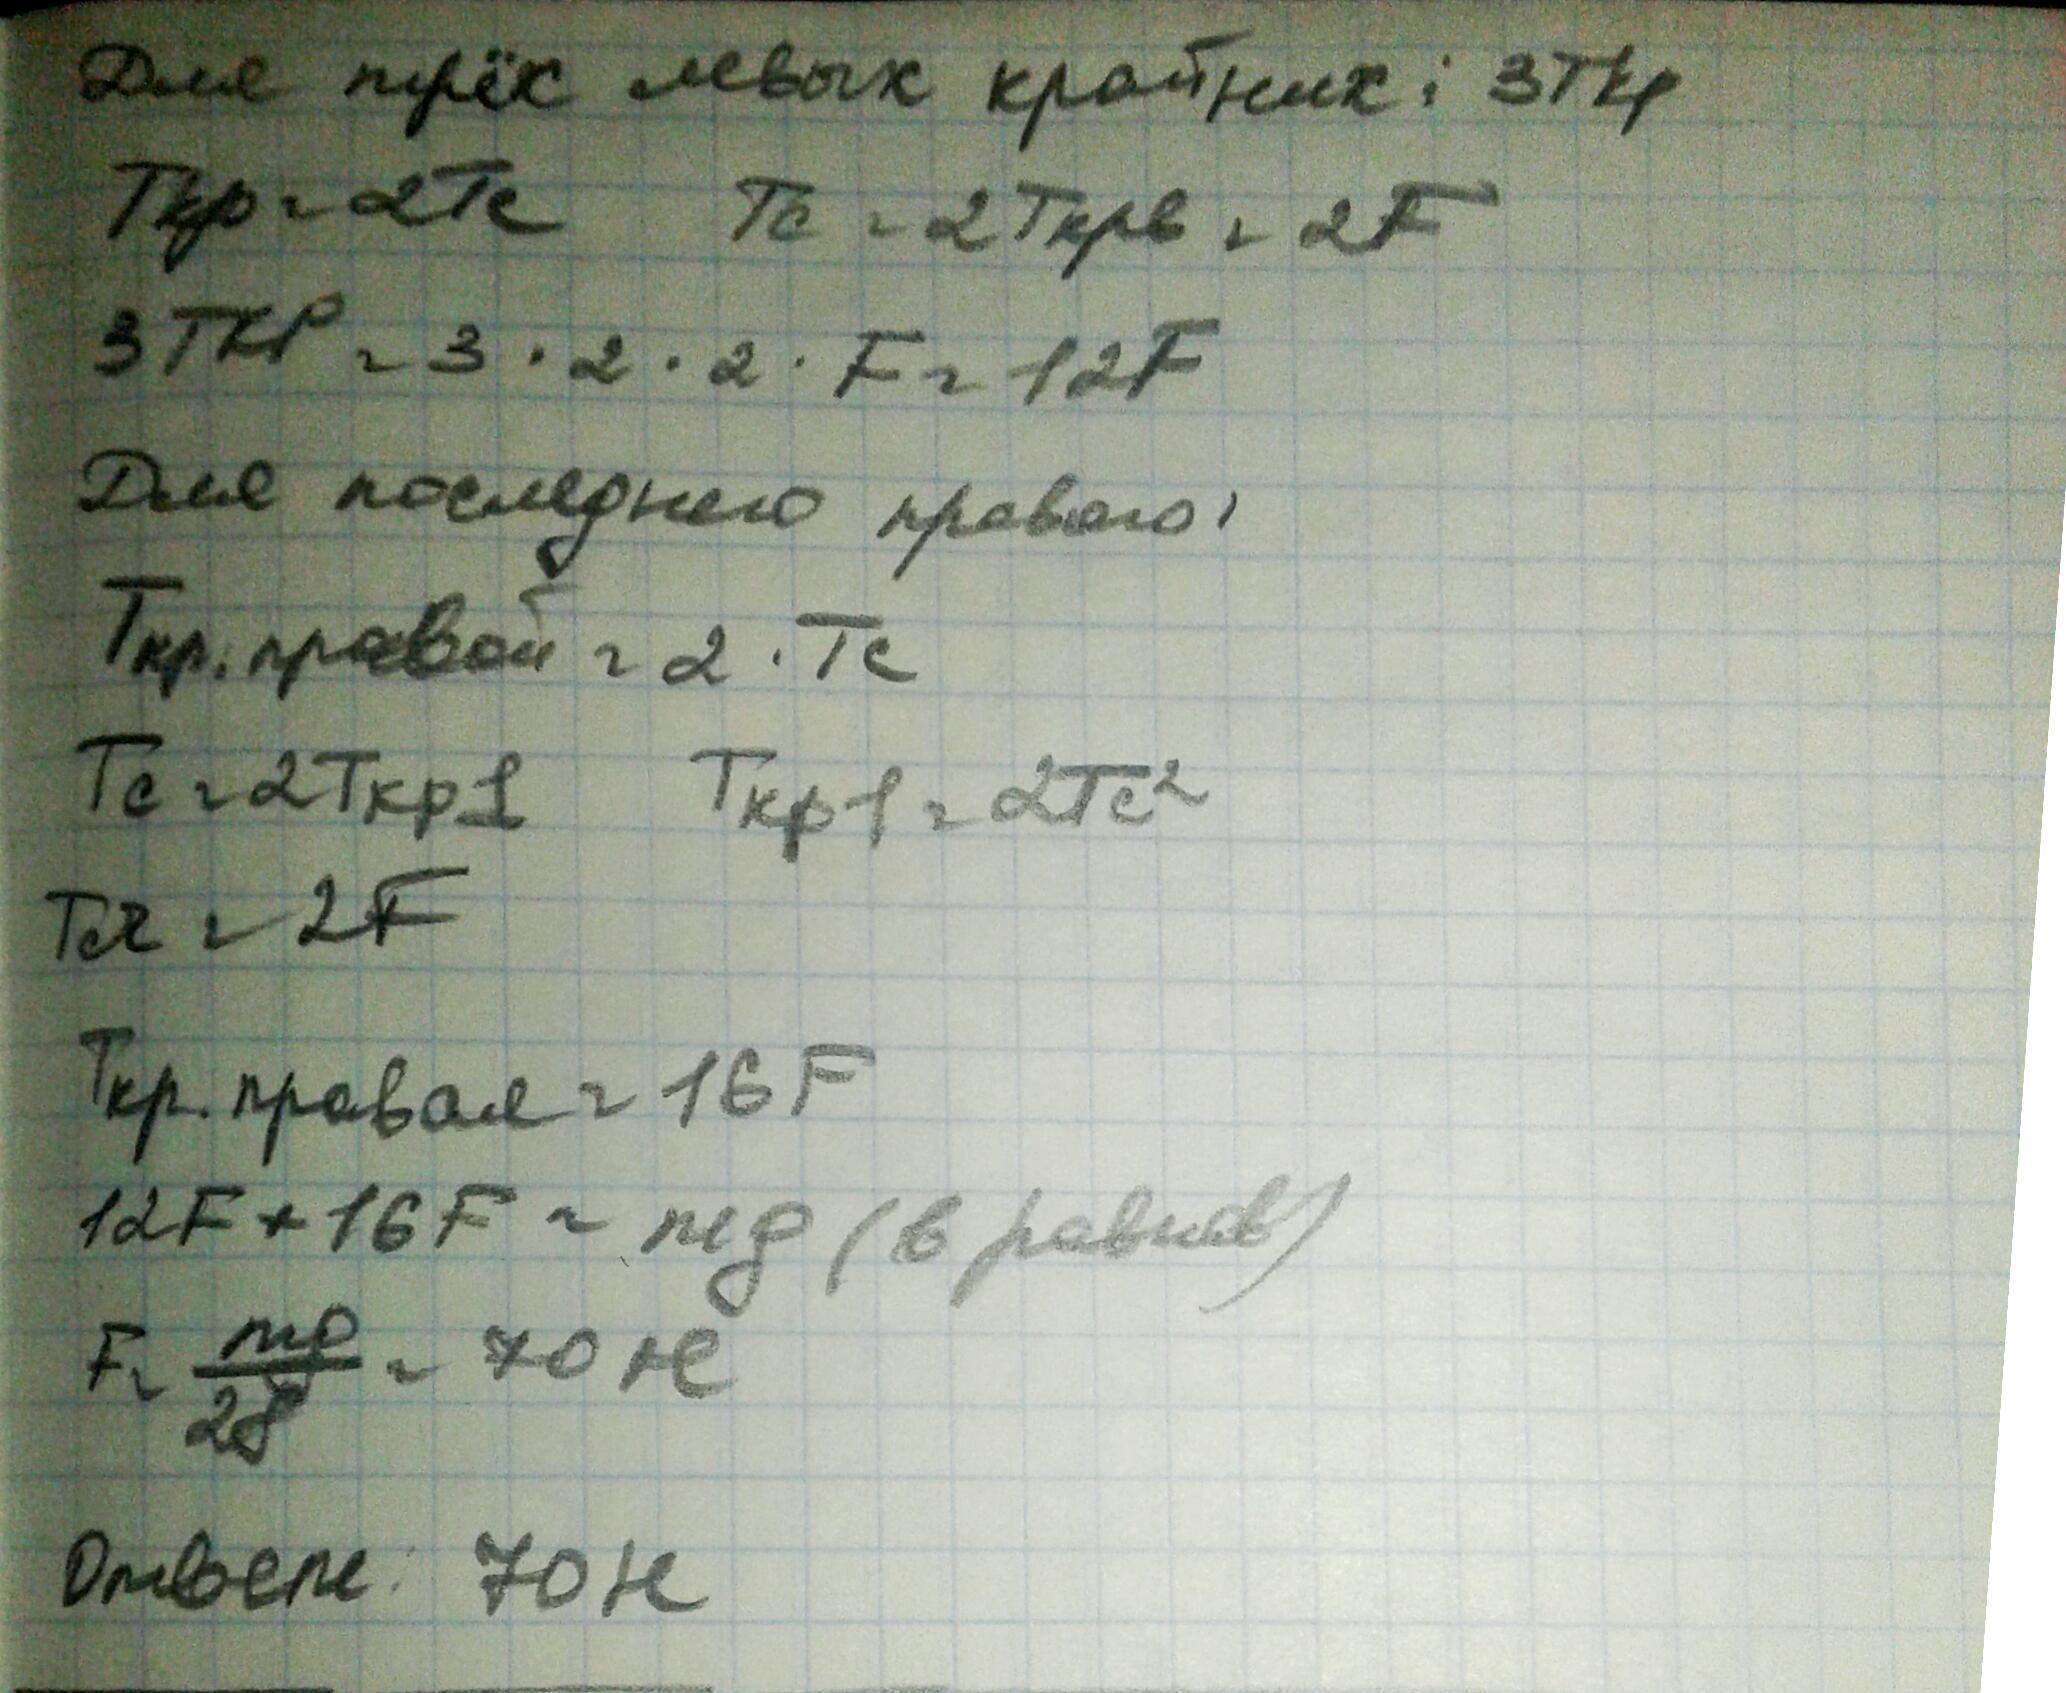 Для трёх левых крайних: 3Tкр
Tкр = 2Tс Tс = 2Tкрв = 2F
3Tкр = 3 · 2 · 2 · F = 12F
Для последнего правого:
Tкр. правой = 2 · Tс
Tс = 2Tкр1 Tкр1 = 2Tс2
Tс2 = 2F
Tкр. правая = 16F
12F + 16F = mg (в равнов)
F = mg/28 = 70 Н
Ответ: 70 Н